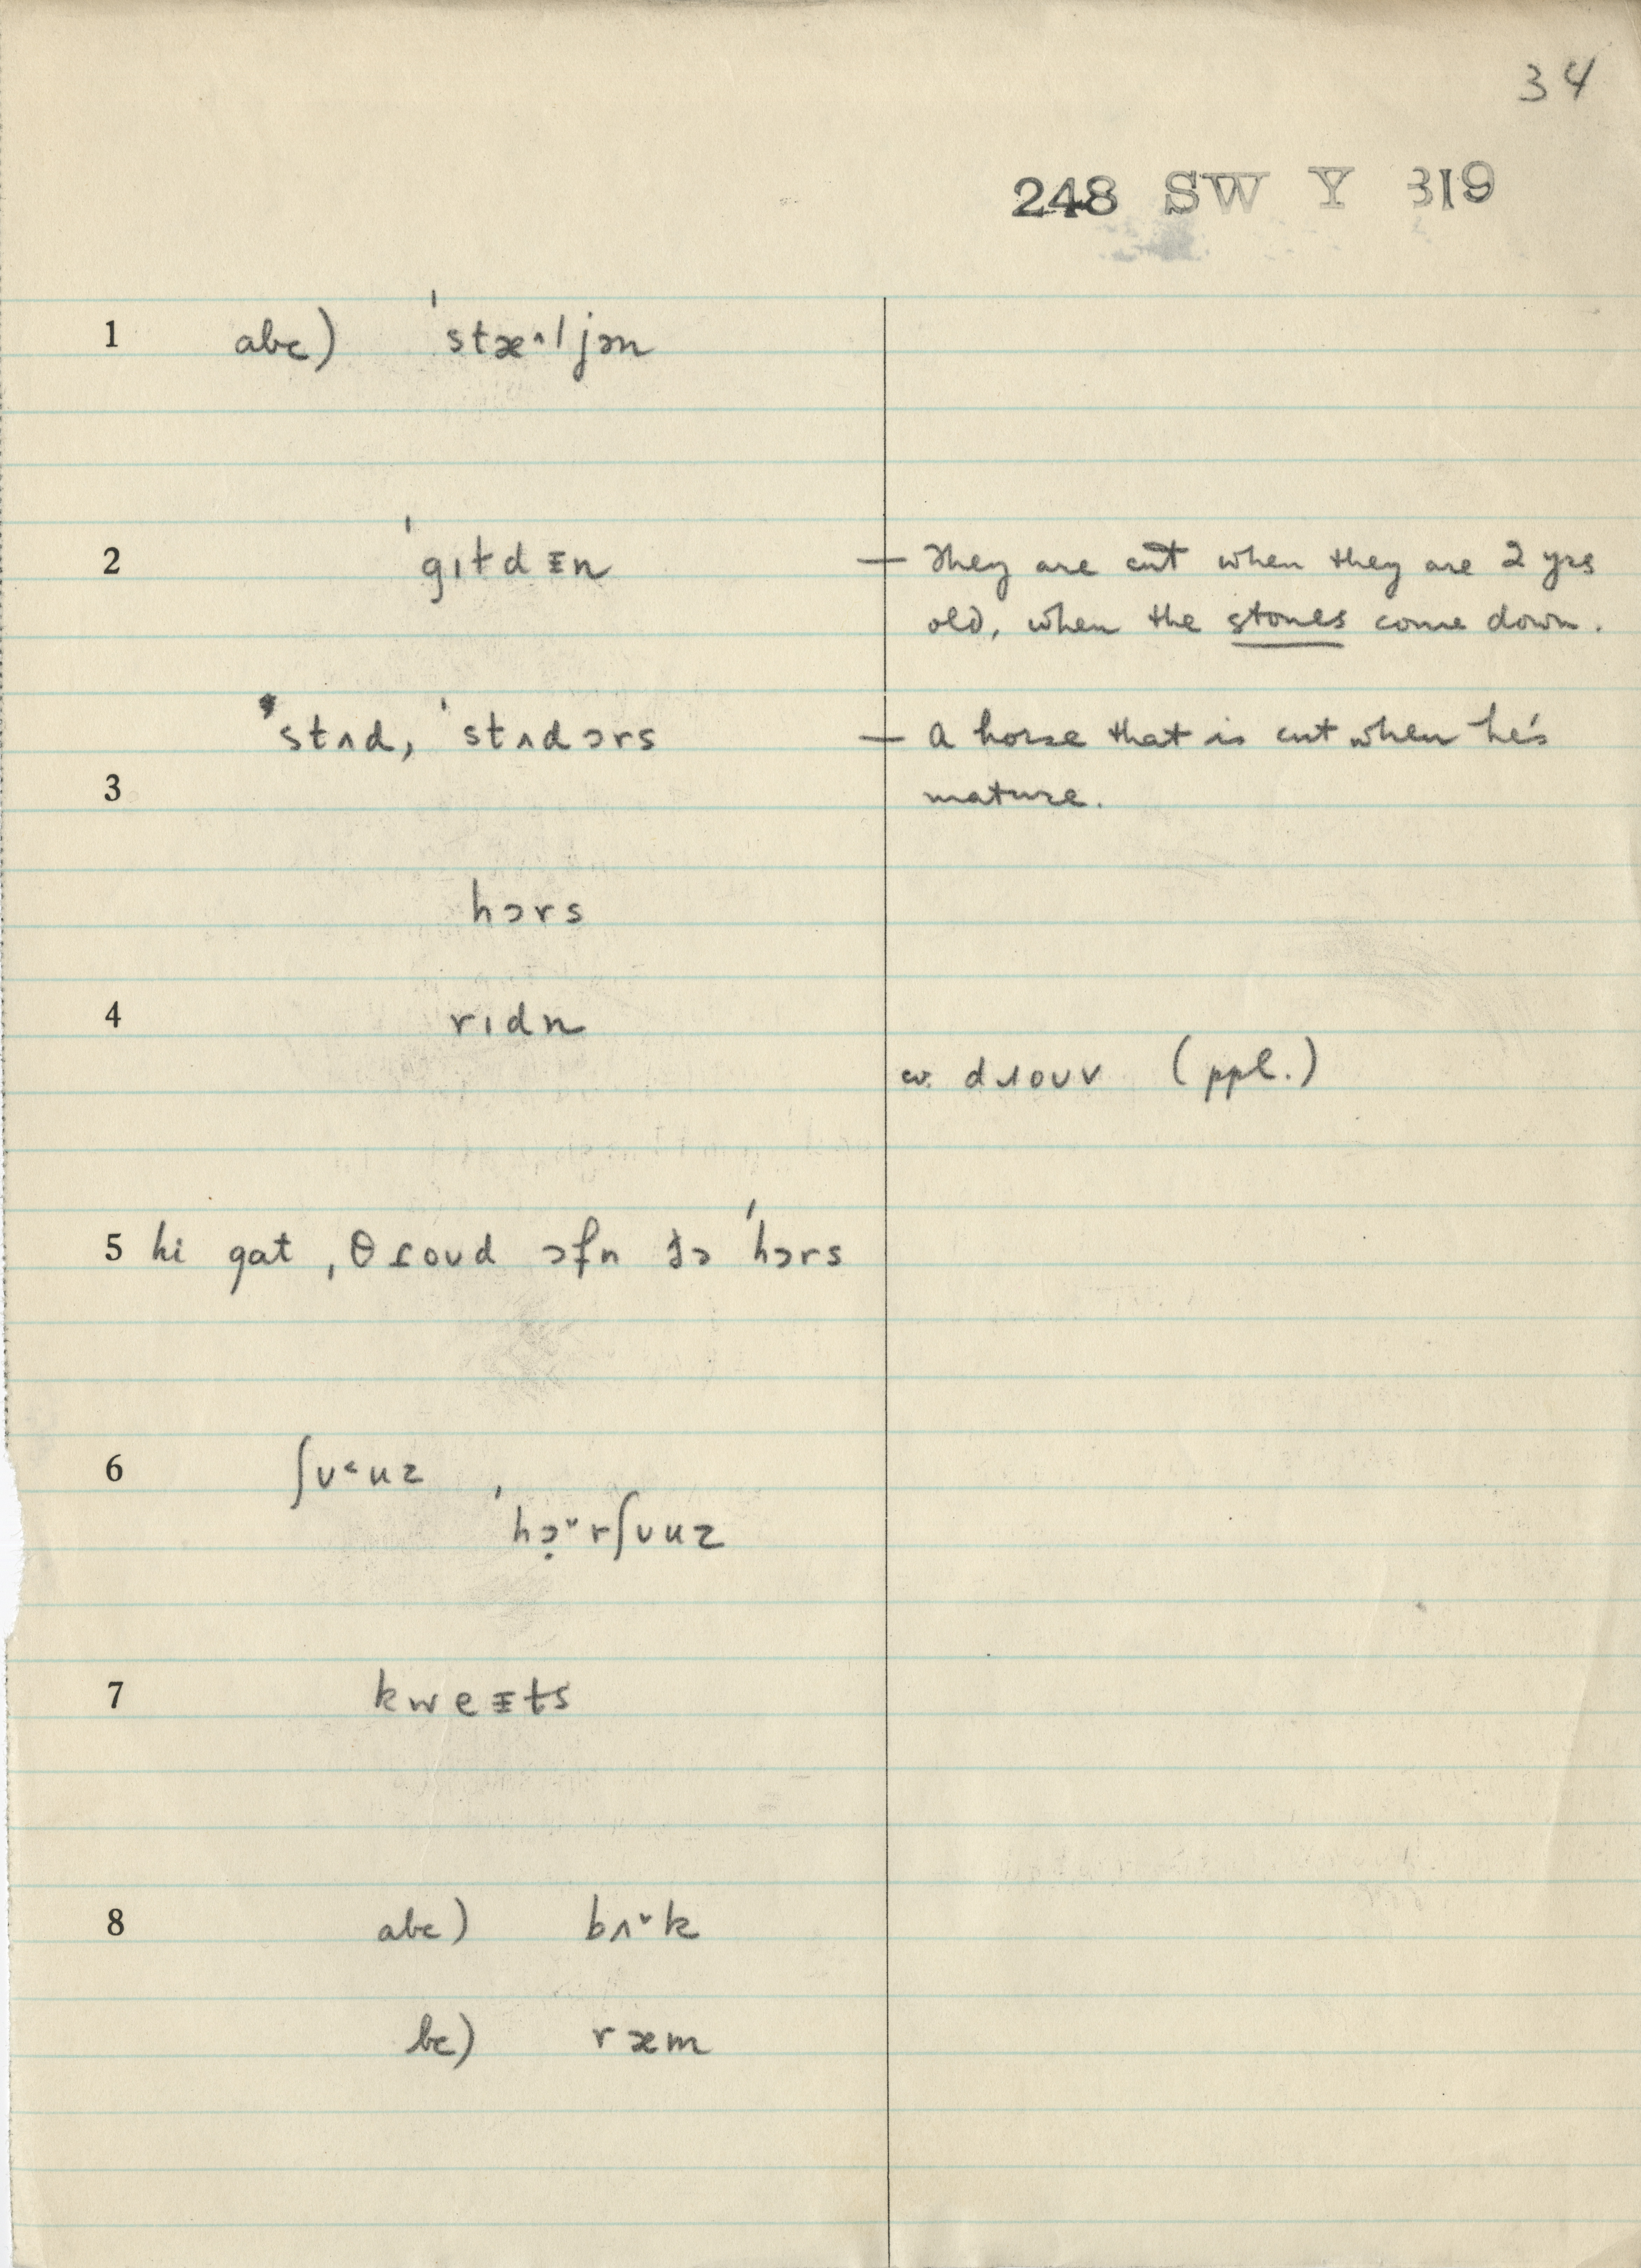 34
248 SW Y 319
1 abc) ˈstæ˄ljən
2 ˈgɪɫdᵻn — They are cut when they are 2 yrs
old, when the stones come down.
stʌd, ˈstʌdɔrs — A horse that is cut when he's
3 mature.
hɔrs
4 rɪdn
cv. dɹouv (ppl.)
5 hi gat ˌθɾoud ɔfn ðə ˈhɔrs
6 ʃʊ˂uz
ˈhɔ̣˅rʃʊuz
7 kweᵻts
8 abc) bʌ˅k
bc) ræm